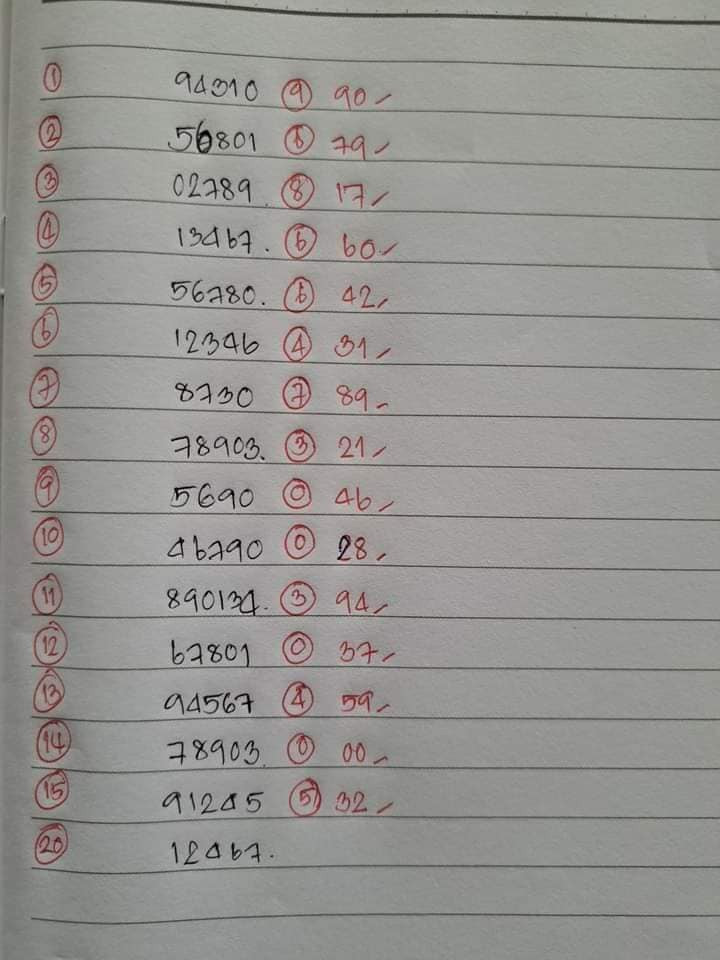 1 94310 9 90
2 56801 6 79
3 02789. 8 17
4 13467. 6 60
5 56780. 6 42
6 12346 4 31
7 8730 7 89
8 78903. 3 21
9 5690 0 46
10 46790 0 28
11 890134. 3 94
12 67801 0 37
13 94567 4 59
14 78903. 0 00
15 91245 5 32
20 12467.